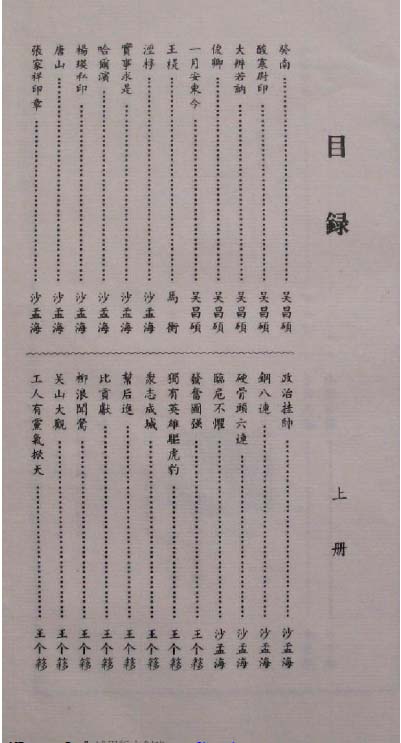 目録
上册
癸南……吴昌碩
酸寒尉印……吴昌碩
大辨若訥……吴昌碩
俊卿……吴昌碩
一月安東令……吴昌碩
王禔……馬衡
……沙孟海
實事求是……沙孟海
哈爾濱……沙孟海
楊瑛私印……沙孟海
唐山……沙孟海
張家祥印章……沙孟海
政治挂帥……沙孟海
鋼八連……沙孟海
硬骨頭六連……沙孟海
臨危不懼……沙孟海
發奮圖强……王个簃
獨有英雄驅虎豹……王个簃
衆志成城……王个簃
幫后進……王个簃
比貢獻……王个簃
柳浪聞鶯……王个簃
吴山大觀……王个簃
工人有黨氣掀天……王个簃